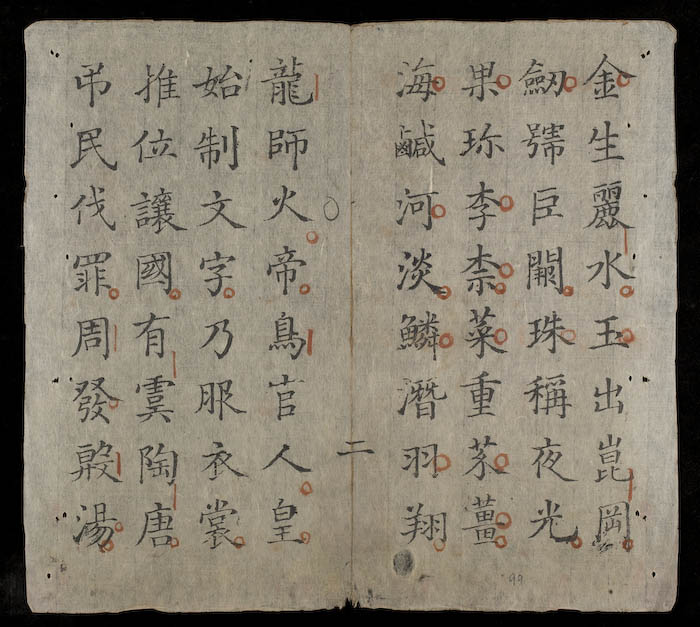 金生麗水玉出崑岡
劔號巨闕珠稱夜光
果珎李柰菜重芥薑
海鹹河淡鱗潛羽翔
二
龍師火帝鳥官人皇
始制文字乃服衣裳
推位讓國有虞陶唐
弔民伐罪周發殷湯
99